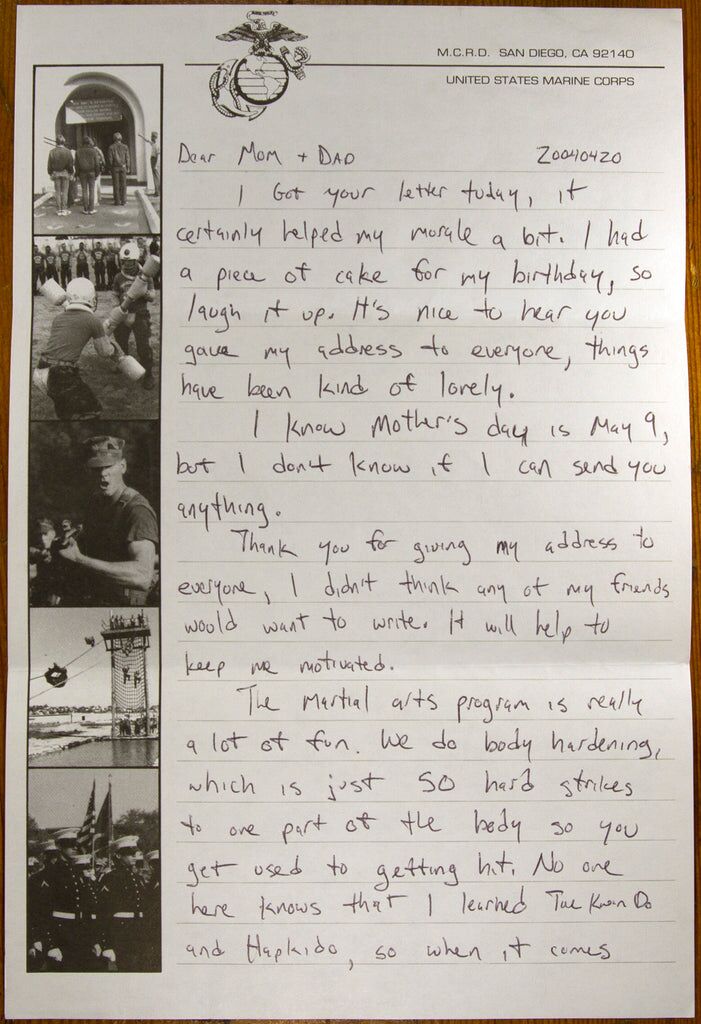 M.C.R.D. SAN DIEGO, CA 92140
UNITED STATES MARINE CORPS
Dear Mom + DAD 20040420
I Got your letter today, it
certainly helped my morale a bit. I had
a piece of cake for my birthday, so
laugh it up. It's nice to hear you
gave my address to everyone, things
have been kind of lonely.
I know Mother's day is May 9,
but I don't know if I can send you
anything.
Thank you for giving my address to
everyone, I didn't think any of my friends
would want to write. It will help to
keep me motivated.
The martial arts program is really
a lot of fun. We do body hardening,
which is just 50 hard strikes
to one part of the body so you
get used to getting hit. No one
here knows that I learned Tae Kwon Do
and Hapkido, so when it comes